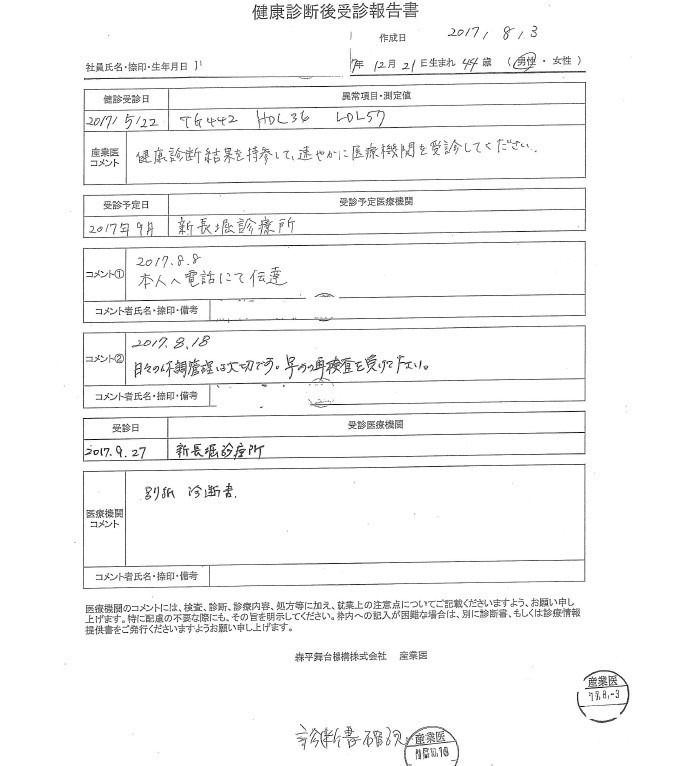 健康診断後受診報告書
作成日 2017, 8, 3
社員氏名・捺印・生年月日
年 12月 21日生まれ 44歳 (男性・女性)
健診受診日 異常項目・測定値
2017/5/22 TG442 HDL36 LDL57
産業医
コメント
健康診断結果を持参して、速やかに医療機関を受診してください.
受診予定日 受診予定医療機関
2017年9月 新長堀診療所
コメント①
2017.8.8
本人へ電話にて伝達
コメント者氏名・捺印・備考
コメント②
2017.8.18
日々の体調管理は大切です。早めの再検査を受けて下さい。
コメント者氏名・捺印・備考
受診日 受診医療機関
2017.9.27 新長堀診療所
医療機関
コメント
別紙 診断書
コメント者氏名・捺印・備考
医療機関のコメントには、検査、診断、診療内容、処方等に加え、就業上の注意点についてご記載くださいますよう、お願い申し
上げます。特に配慮の不要な際にも、その旨を明示してください。枠内への記入が困難な場合は、別に診断書、もしくは診療情報
提供書をご発行くださいますようお願い申し上げます。
森平舞台機構株式会社 産業医
産業医
診断書確認
産業医